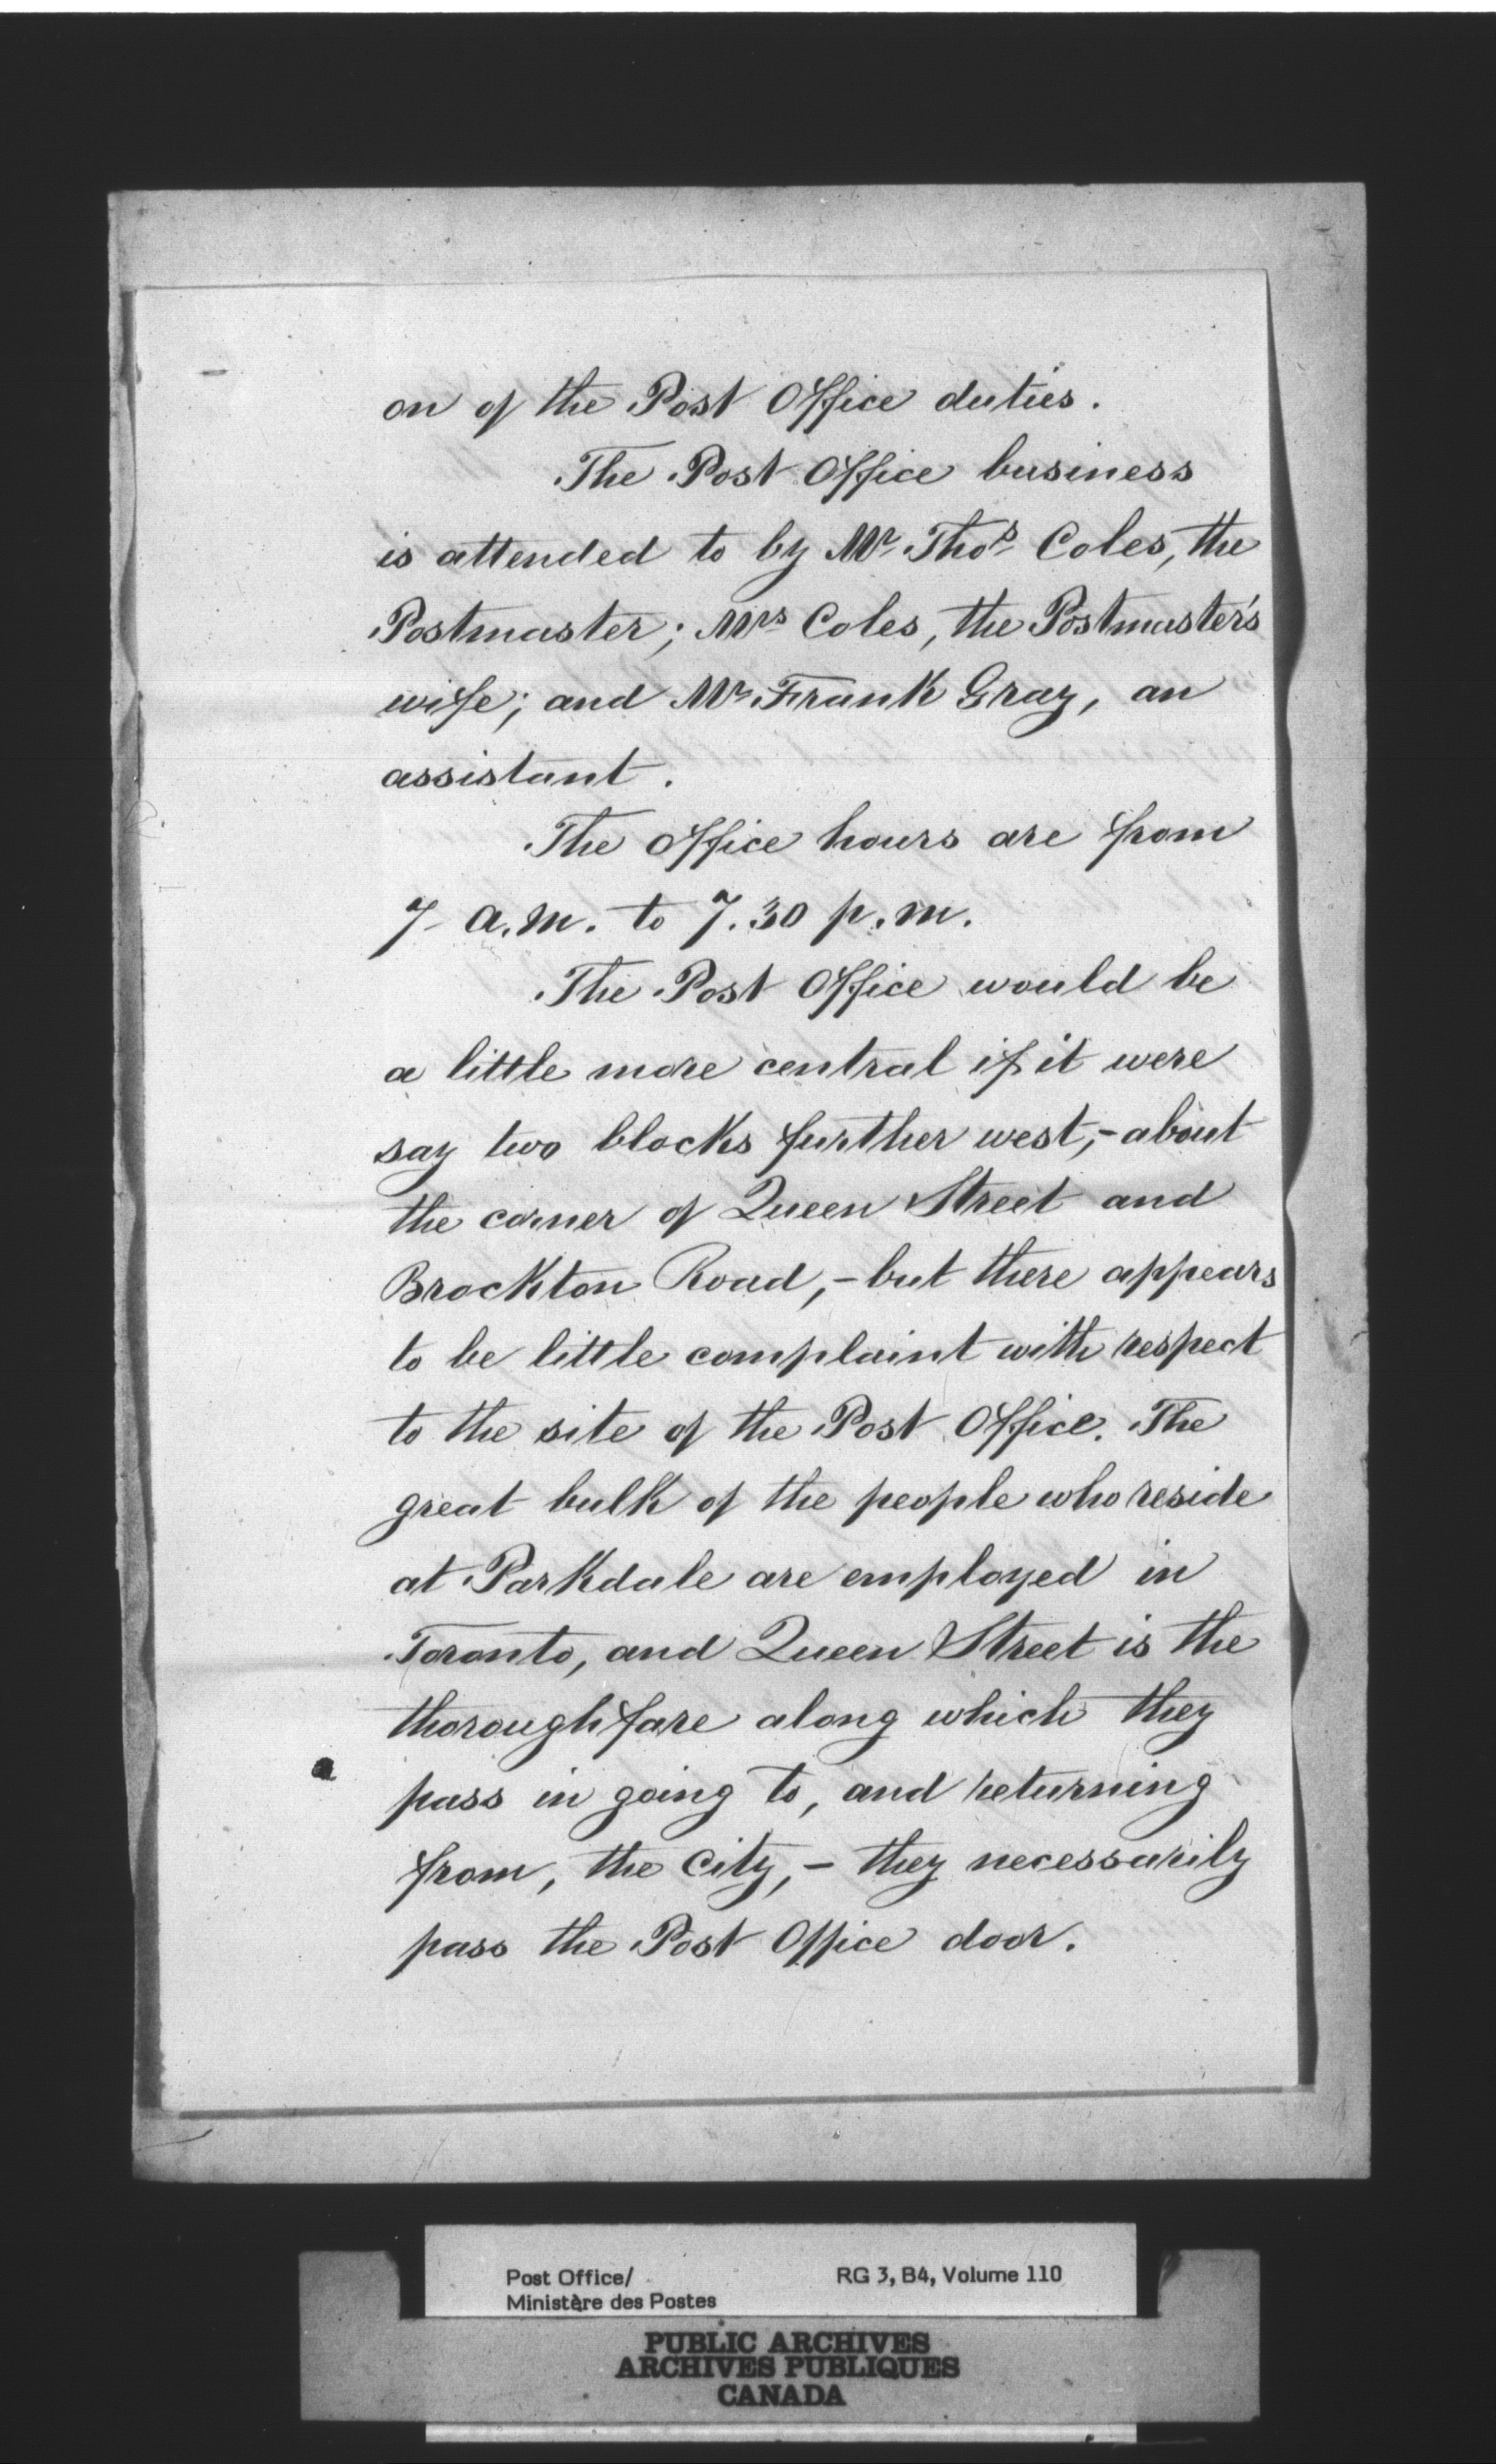 on of the Post Office duties.
The Post Office business
is attended to by Mr. Thos. Coles, the
Postmaster; Mrs Coles, the Postmaster's
wife; and Mr Frank Gray, an
assistant.
The office hours are from
7 a.m. to 7.30 p.m.
The Post Office would be
a little more central if it were
say two blocks further west,- about
the corner of Queen Street and
Brockton Road,- but there appears
to be little complaint with respect
to the site of the Post Office. The
great bulk of the people who reside
at Parkdale are employed in
Toronto, and Queen Street is the
thoroughfare along which they
pass in going to, and returning
from, the city,- they necessarily
pass the Post Office door.
Post Office/ RG 3, B4, Volume 110
Ministère des Postes
PUBLIC ARCHIVES
ARCHIVES PUBLIQUES
CANADA